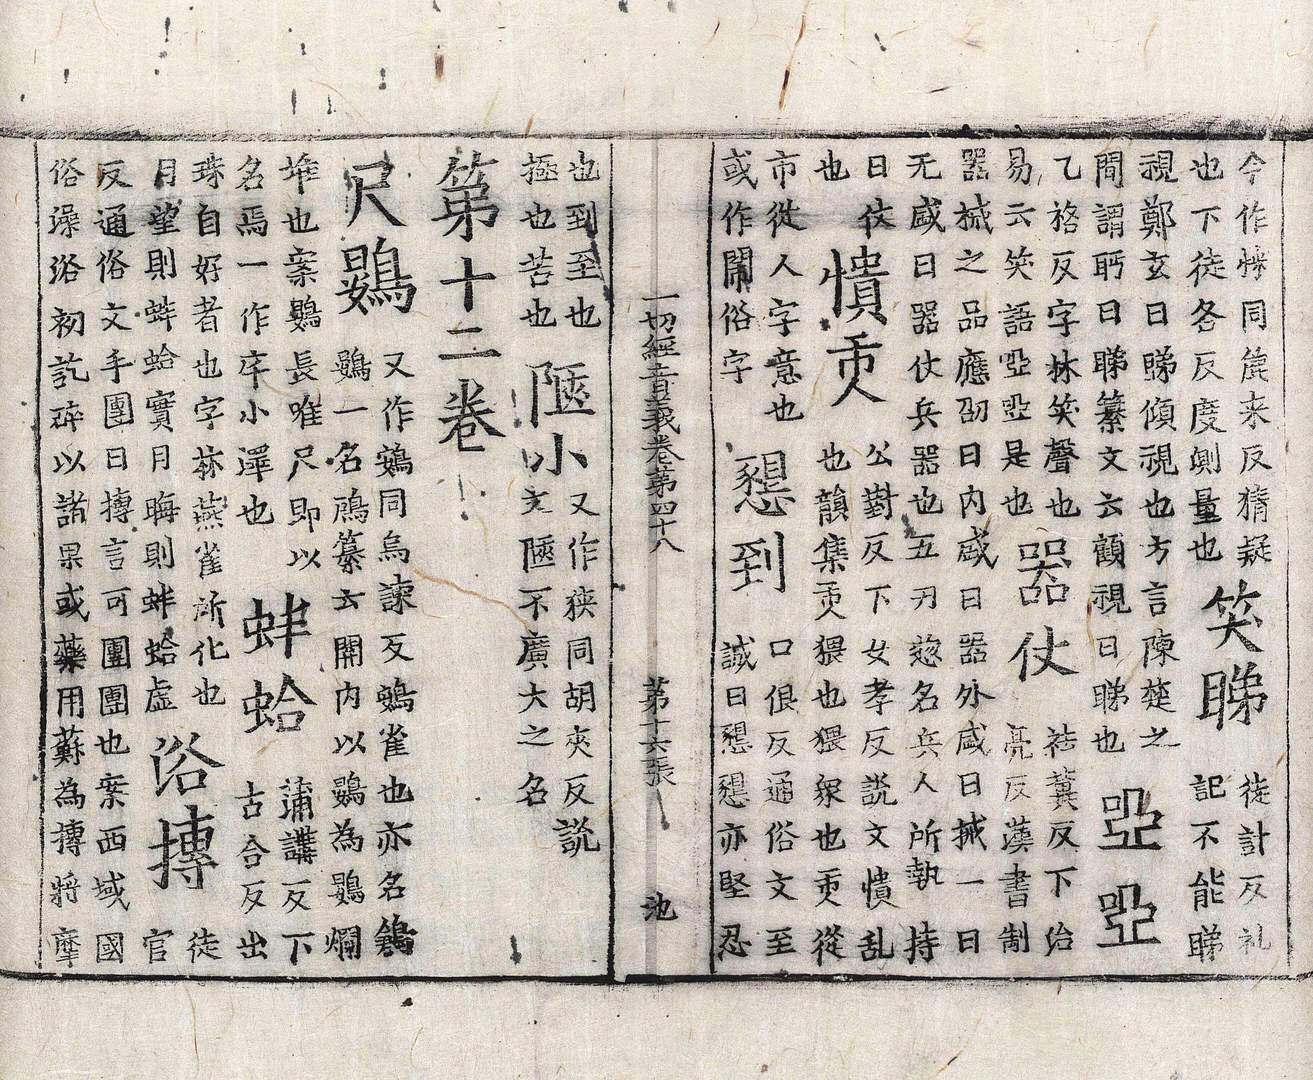 今作怺同麁来反猜疑
也下徒各反度測量也
笑睇
徒計反礼
記不能睇
視鄭玄曰睇傾視也方言陳楚之
間謂眄曰睇纂文云顧視曰睇也
啞啞
乙格反字林笑聲也
易云笑語啞啞是也
器仗
祛冀反下治
亮反漢書制
器械之品應劭曰内盛曰器外盛曰械一曰
无盛曰器仗兵器也五刃惣名兵人所執持
曰仗
也
憒吏
公對反下女孝反説文憒乱
也韻集吏猥也猥衆也吏從
市從人字意也
或作閙俗字
懇到
口佷反通俗文至
誠曰懇懇亦堅忍
一切經音義卷第四十八 第十六張 池
也到至也
極也苦也
陿小
又作狹同胡夾反説
文陿不廣大之名
第十二卷
尺鷃
又作鴳同烏諫反鴳雀也亦名鷃
鷃一名鳸纂云關内以鷃為鷃爛
堆也案鷃長唯尺即以
名焉一作斥小澤也
蚌蛤
蒲講反下
古合反出
珠自好者也字林燕雀所化也
月望則蚌蛤實月晦則蚌蛤虛
俗摶
徒
官
反通俗文手團曰摶言可團團也案西域國
俗澡浴初訖碎以諸果或藥用蘇為摶將摩